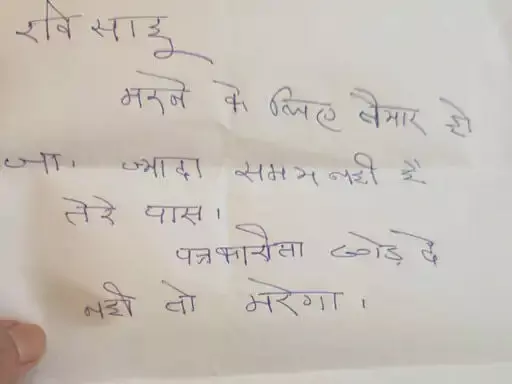 रवि साहू
मरने के लिए तैयार हो
जा। ज्यादा समय नही है
तेरे पास।
पत्रकारिता छोड़ दे
नही तो मरेगा।